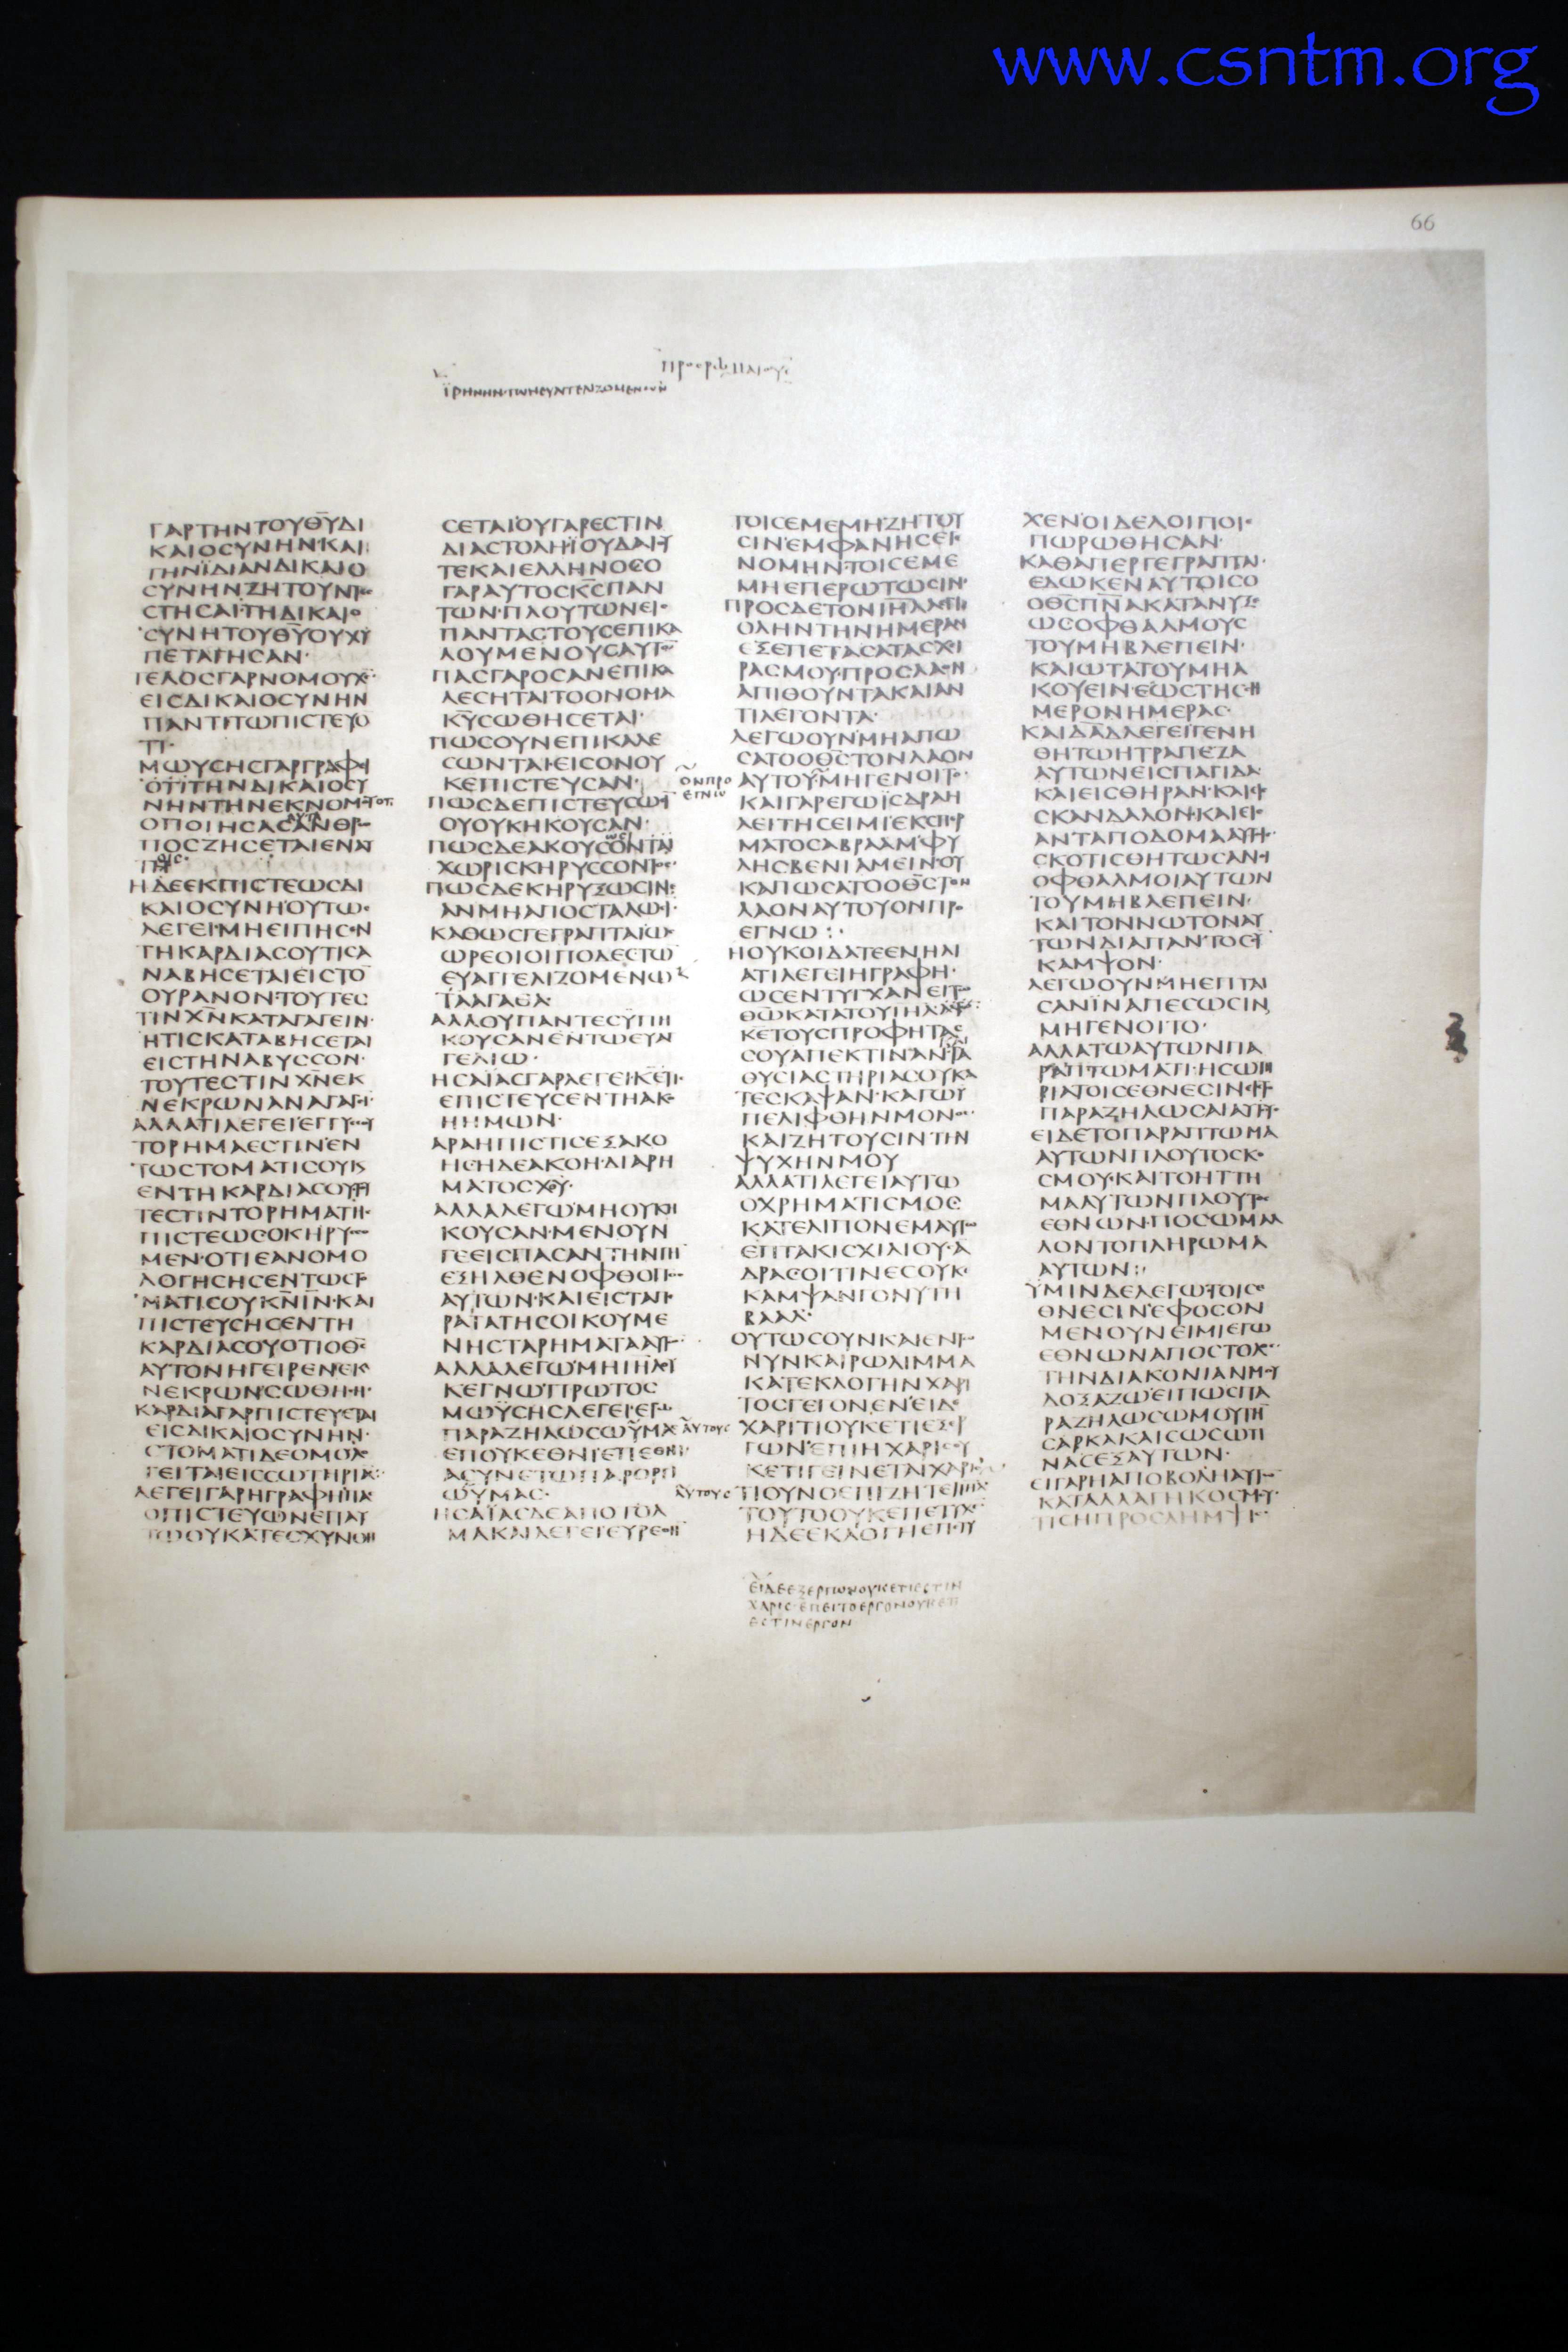 www.csntm.org
66
ΓΑΡΤΗΝΤΟΥΘΥΔΙ
ΚΑΙΟCΥΝΗΝΚΑΙ
ΤΗΝΪΔΙΑΝΔΙΚΑΙΟ
CΥΝΗΝΖΗΤΟΥΝ
CΤΗCΑΙΤΗΔΙΚΑΙΟ
CΥΝΗΤΟΥΘΥΟΥΧΥ
ΠΕΤΑΓΗCΑΝ·
ΤΕΛΟCΓΑΡΝΟΜΟΥΧC
ΕΙCΔΙΚΑΙΟCΥΝΗΝ
ΠΑΝΤΙΤΩΠΙCΤΕΥΟ
ΤΙ·
ΜΩΥCΗCΓΑΡΓΡΑΦΙ
ΟΤΙΤΗΝΔΙΚΑΙΟCΥ
ΝΗΝΤΗΝΕΚΝΟΜΟΥ
ΟΠΟΙΗCΑCΑΝΘΡΩ
ΠΟCΖΗCΕΤΑΙΕΝΑΥ
ΗΔΕΕΚΠΙCΤΕΩCΔΙ
ΚΑΙΟCΥΝΗΟΥΤΩC
ΛΕΓΕΙΜΗΕΙΠΗCΕΝ
ΤΗΚΑΡΔΙΑCΟΥΤΙCΑ
ΝΑΒΗCΕΤΑΙΕΙCΤΟ
ΟΥΡΑΝΟΝΤΟΥΤΕC
ΤΙΝΧΝΚΑΤΑΓΑΓΕΙΝ·
ΗΤΙCΚΑΤΑΒΗCΕΤΑΙ
ΕΙCΤΗΝΑΒΥCCΟΝ·
ΤΟΥΤΕCΤΙΝΧΝΕΚ
ΝΕΚΡΩΝΑΝΑΓΑΓΙ
ΑΛΛΑΤΙΛΕΓΕΙΕΓΓΥCΟΥ
ΤΟΡΗΜΑΕCΤΙΝΕΝ
ΤΩCΤΟΜΑΤΙCΟΥΚ
ΕΝΤΗΚΑΡΔΙΑCΟΥΤΥ
ΤΕCΤΙΝΤΟΡΗΜΑΤΗC
ΠΙCΤΕΩCΟΚΗΡΥCCΟ
ΜΕΝ·ΟΤΙΕΑΝΟΜΟ
ΛΟΓΗCΗCΕΝΤΩCΤΟ
ΜΑΤΙCΟΥΚΝΙΝ·ΚΑΙ
ΠΙCΤΕΥCΗCΕΝΤΗ
ΚΑΡΔΙΑCΟΥΟΤΙΟΘC
ΑΥΤΟΝΗΓΕΙΡΕΝΕΚ
ΝΕΚΡΩΝCΩΘΗCΗ·
ΚΑΡΔΙΑΓΑΡΠΙCΤΕΥΕΤΑΙ
ΕΙCΔΙΚΑΙΟCΥΝΗΝ·
CΤΟΜΑΤΙΔΕΟΜΟΛΟ
ΓΕΙΤΑΙΕΙCCΩΤΗΡΙΑ
ΛΕΓΕΙΓΑΡΗΓΡΑΦΗΠΑC
ΟΠΙCΤΕΥΩΝΕΠΑΥ
ΤΩΟΥΚΑΤΕCΧΥΝΘΗ
CΕΤΑΙΟΥΓΑΡΕCΤΙΝ
ΔΙΑCΤΟΛΗΪΟΥΔΑΙΟΥ
ΤΕΚΑΙΕΛΛΗΝΟCΟ
ΓΑΡΑΥΤΟCΚCΠΑΝ
ΤΩΝ·ΠΛΟΥΤΩΝΕΙC
ΠΑΝΤΑCΤΟΥCΕΠΙΚΑ
ΛΟΥΜΕΝΟΥCΑΥΤΟ
ΠΑCΓΑΡΟCΑΝΕΠΙΚΑ
ΛΕCΗΤΑΙΤΟΟΝΟΜΑ
ΚΥCΩΘΗCΕΤΑΙ·
ΠΩCΟΥΝΕΠΙΚΑΛΕ
CΩΝΤΑΙΕΙCΟΝΟΥ
ΚΕΠΙCΤΕΥCΑΝ·
ΠΩCΔΕΠΙCΤΕΥCΩCΙ
ΟΥΟΥΚΗΚΟΥCΑΝ·
ΠΩCΔΕΑΚΟΥCΟΝΤΑΙ
ΧΩΡΙCΚΗΡΥCCΟΝΤΟC
ΠΩCΔΕΚΗΡΥΞΩCΙΝ
ΑΝΜΗΑΠΟCΤΑΛΩCΙ·
ΚΑΘΩCΓΕΓΡΑΠΤΑΙΩC
ΩΡΕΟΙΟΙΠΟΔΕCΤΩ
ΕΥΑΓΓΕΛΙΖΟΜΕΝΩ
ΤΑΑΓΑΘΑ
ΑΛΛΟΥΠΑΝΤΕCΥΠΗ
ΚΟΥCΑΝΕΝΤΩΕΥΑΓ
ΓΕΛΙΩ·
ΗCΑΪΑCΓΑΡΛΕΓΕΙ·ΚΕΤΙC
ΕΠΙCΤΕΥCΕΝΤΗΑΚΟ
ΗΗΜΩΝ·
ΑΡΑΗΠΙCΤΙCΕΞΑΚΟ
ΗCΗΔΕΑΚΟΗΔΙΑΡΗ
ΜΑΤΟCΧΥ·
ΑΛΛΑΛΕΓΩΜΗΟΥΚΗ
ΚΟΥCΑΝ·ΜΕΝΟΥΝ
ΓΕΕΙCΠΑCΑΝΤΗΝΓΗ
ΕΞΗΛΘΕΝΟΦΘΟΓΓΟC
ΑΥΤΩΝ·ΚΑΙΕΙCΤΑΠΕ
ΡΑΤΑΤΗCΟΙΚΟΥΜΕ
ΝΗCΤΑΡΗΜΑΤΑΑΥΤΩ
ΑΛΛΑΛΕΓΩΜΗΙΗΛΟΥ
ΚΕΓΝΩΠΡΩΤΟC
ΜΩΥCΗCΛΕΓΕΙΕΓΩ
ΠΑΡΑΖΗΛΩCΩΥΜΑC
ΕΠΟΥΚΕΘΝΙΕΠΙΕΘΝΙ
ΑCΥΝΕΤΩΠΑΡΟΡΓΙ
ΩΥΜΑC·
ΗCΑΪΑCΔΕΑΠΟΤΟΛ
ΜΑΚΑΙΛΕΓΕΙΕΥΡΕΘΗ
ΟΝΠΡΟ
ΕΓΝΩ
ΑΥΤΟΥC
ΑΥΤΟΥC
ΤΟΙCΕΜΕΜΗΖΗΤΟΥ
CΙΝΕΜΦΑΝΗCΕΓΕ
ΝΟΜΗΝ·ΤΟΙCΕΜΕ
ΜΗΕΠΕΡΩΤΩCΙΝ·
ΠΡΟCΔΕΤΟΝΙΗΛΛΕΓΙ
ΟΛΗΝΤΗΝΗΜΕΡΑΝ
ΕΞΕΠΕΤΑCΑΤΑCΧΙ
ΡΑCΜΟΥ·ΠΡΟCΛΑΟΝ
ΑΠΙΘΟΥΝΤΑΚΑΙΑΝ
ΤΙΛΕΓΟΝΤΑ·
ΛΕΓΩΟΥΝΜΗΑΠΩ
CΑΤΟΟΘCΤΟΝΛΑΟΝ
ΑΥΤΟΥ·ΜΗΓΕΝΟΙΤΟ·
ΚΑΙΓΑΡΕΓΩΪCΔΡΑΗ
ΛΕΙΤΗCΕΙΜΙΕΚCΠΕΡ
ΜΑΤΟCΑΒΡΑΑΜΦΥ
ΛΗCΒΕΝΙΑΜΕΙΝΟΥ
ΚΑΠΩCΑΤΟΟΘCΤΟΝ
ΛΑΟΝΑΥΤΟΥΟΝΠΡΟ
ΕΓΝΩ:·
ΗΟΥΚΟΙΔΑΤΕΕΝΗΛΙ
ΑΤΙΛΕΓΕΙΗΓΡΑΦΗ·
ΩCΕΝΤΥΓΧΑΝΕΙΤΩ
ΘΩΚΑΤΑΤΟΥΙΗΛ
ΚΕΤΟΥCΠΡΟΦΗΤΑC
CΟΥΑΠΕΚΤΙΝΑΝΤΑ
ΘΥCΙΑCΤΗΡΙΑCΟΥΚΑ
ΤΕCΚΑΨΑΝ·ΚΑΓΩΥ
ΠΕΛΙΦΘΗΝΜΟΝΟC
ΚΑΙΖΗΤΟΥCΙΝΤΗΝ
ΨΥΧΗΝΜΟΥ
ΑΛΛΑΤΙΛΕΓΕΙΑΥΤΩ
ΟΧΡΗΜΑΤΙCΜΟC
ΚΑΤΕΛΙΠΟΝΕΜΑΥΤΩ
ΕΠΤΑΚΙCΧΙΛΙΟΥCΑ
ΔΡΑCΟΙΤΙΝΕCΟΥΚΕ
ΚΑΜΨΑΝΓΟΝΥΤΗ
ΒΑΑΛ·
ΟΥΤΩCΟΥΝΚΑΙΕΝΤΩ
ΝΥΝΚΑΙΡΩΛΙΜΜΑ
ΚΑΤΕΚΛΟΓΗΝΧΑΡΙ
ΤΟCΓΕΓΟΝΕΝΕΙΔΕ
ΧΑΡΙΤΙΟΥΚΕΤΙΕΞΕΡ
ΓΩΝΕΠΙΗΧΑΡΙCΟΥ
ΚΕΤΙΓΕΙΝΕΤΑΙΧΑΡΙC
ΤΙΟΥΝΟΕΠΙΖΗΤΕΙΙΗΛ
ΤΟΥΤΟΟΥΚΕΠΕΤΥΧΕ
ΗΔΕΕΚΛΟΓΗΕΠΕΤΥ
ΕΙΔΕΕΞΕΡΓΩΝΟΥΚΕΤΙΕCΤΙΝ
ΧΑΡΙC·ΕΠΕΙΤΟΕΡΓΟΝΟΥΚΕΤΙ
ΕCΤΙΝΕΡΓΟΝ
ΧΕΝΟΙΔΕΛΟΙΠΟΙΕ
ΠΩΡΩΘΗCΑΝ·
ΚΑΘΑΠΕΡΓΕΓΡΑΠΤΑΙ·
ΕΔΩΚΕΝΑΥΤΟΙCΟ
ΟΘCΠΝΑΚΑΤΑΝΥΞΕ
ΩCΟΦΘΑΛΜΟΥC
ΤΟΥΜΗΒΛΕΠΕΙΝ·
ΚΑΙΩΤΑΤΟΥΜΗΑ
ΚΟΥΕΙΝΕΩCΤΗCCΗ
ΜΕΡΟΝΗΜΕΡΑC·
ΚΑΙΔΑΔΛΕΓΕΙΓΕΝΗ
ΘΗΤΩΗΤΡΑΠΕΖΑ
ΑΥΤΩΝΕΙCΠΑΓΙΔΑ
ΚΑΙΕΙCΘΗΡΑΝ·ΚΑΙΕΙ
CΚΑΝΔΑΛΟΝ·ΚΑΙΕΙC
ΑΝΤΑΠΟΔΟΜΑΑΥΤΟΙ
CΚΟΤΙCΘΗΤΩCΑΝΟΙ
ΟΦΘΑΛΜΟΙΑΥΤΩΝ
ΤΟΥΜΗΒΛΕΠΕΙΝ·
ΚΑΙΤΟΝΝΩΤΟΝΑΥ
ΤΩΝΔΙΑΠΑΝΤΟCΥ
ΚΑΜΨΟΝ·
ΛΕΓΩΟΥΝΜΗΕΠΤΑΙ
CΑΝΪΝΑΠΕCΩCΙΝ
ΜΗΓΕΝΟΙΤΟ·
ΑΛΛΑΤΩΑΥΤΩΝΠΑ
ΡΑΠΤΩΜΑΤΙ·ΗCΩΤΗ
ΡΙΑΤΟΙCΕΘΝΕCΙΝΕΙC
ΠΑΡΑΖΗΛΩCΑΙΑΥΤΟΥC
ΕΙΔΕΤΟΠΑΡΑΠΤΩΜΑ
ΑΥΤΩΝΠΛΟΥΤΟCΚΟ
CΜΟΥ·ΚΑΙΤΟΗΤΤΗ
ΜΑΑΥΤΩΝΠΛΟΥΤΟC
ΕΘΝΩΝ·ΠΟCΩΜΑΛ
ΛΟΝΤΟΠΛΗΡΩΜΑ
ΑΥΤΩΝ:·
ΥΜΙΝΔΕΛΕΓΩΤΟΙCΕ
ΘΝΕCΙΝΕΦΟCΟΝ
ΜΕΝΟΥΝΕΙΜΙΕΓΩ
ΕΘΝΩΝΑΠΟCΤΟΛΟC
ΤΗΝΔΙΑΚΟΝΙΑΝΜΟΥ
ΔΟΞΑΖΩΕΙΠΩCΠΑ
ΡΑΖΗΛΩCΩΜΟΥΤΗ
CΑΡΚΑΚΑΙCΩCΩΤΙ
ΝΑCΕΞΑΥΤΩΝ·
ΕΙΓΑΡΗΑΠΟΒΟΛΗΑΥΤΩ
ΚΑΤΑΛΛΑΓΗΚΟCΜΟΥ·
ΤΙCΗΠΡΟCΛΗΜΨΙC